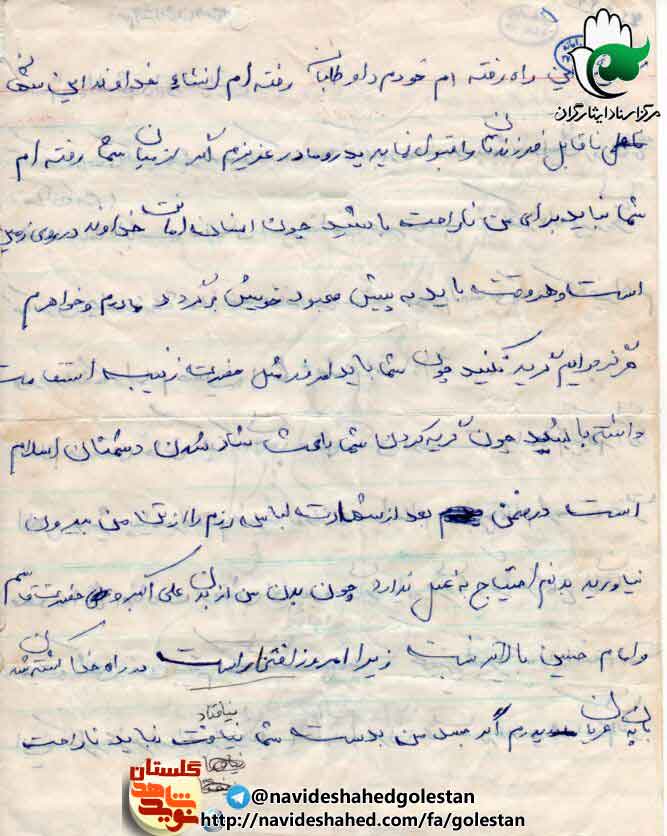 مرکز اسناد ایثارگران
راه رفته ام خودم داوطلبانه رفته ام انشاء خداوند این
ناقابل فرزندتان را قبول نماید پدر و مادر عزیزم اگر از میان شما رفته ام
شما نباید برای من ناراحت باشید چون انسان امانت خداوند در روی زمین
است و هر وقت باید به پیش معبود خویش برگردد مادرم و خواهرم
هرگز برایم گریه نکنید چون شما باید امروز مثل حضرت زینب استقامت
داشته باشید چون گریه کردن شما باعث شاد شدن دشمنان اسلام
است در ضمن بعد از شهادت لباس رزم را از تن من بیرون
نیاورید بدنم احتیاج به غسل ندارد چون بدن من از بدن علی اکبر و حضرت قاسم
و امام حسین بالاتر نیست زیرا امروز افتخار است در راه خدا کشته شدن
پدرم اگر جسد من بدست شما نیافتاد نباید ناراحت
گلستان
نوید شاهد
@navideshahedgolestan
http://navideshahed.com/fa/golestan